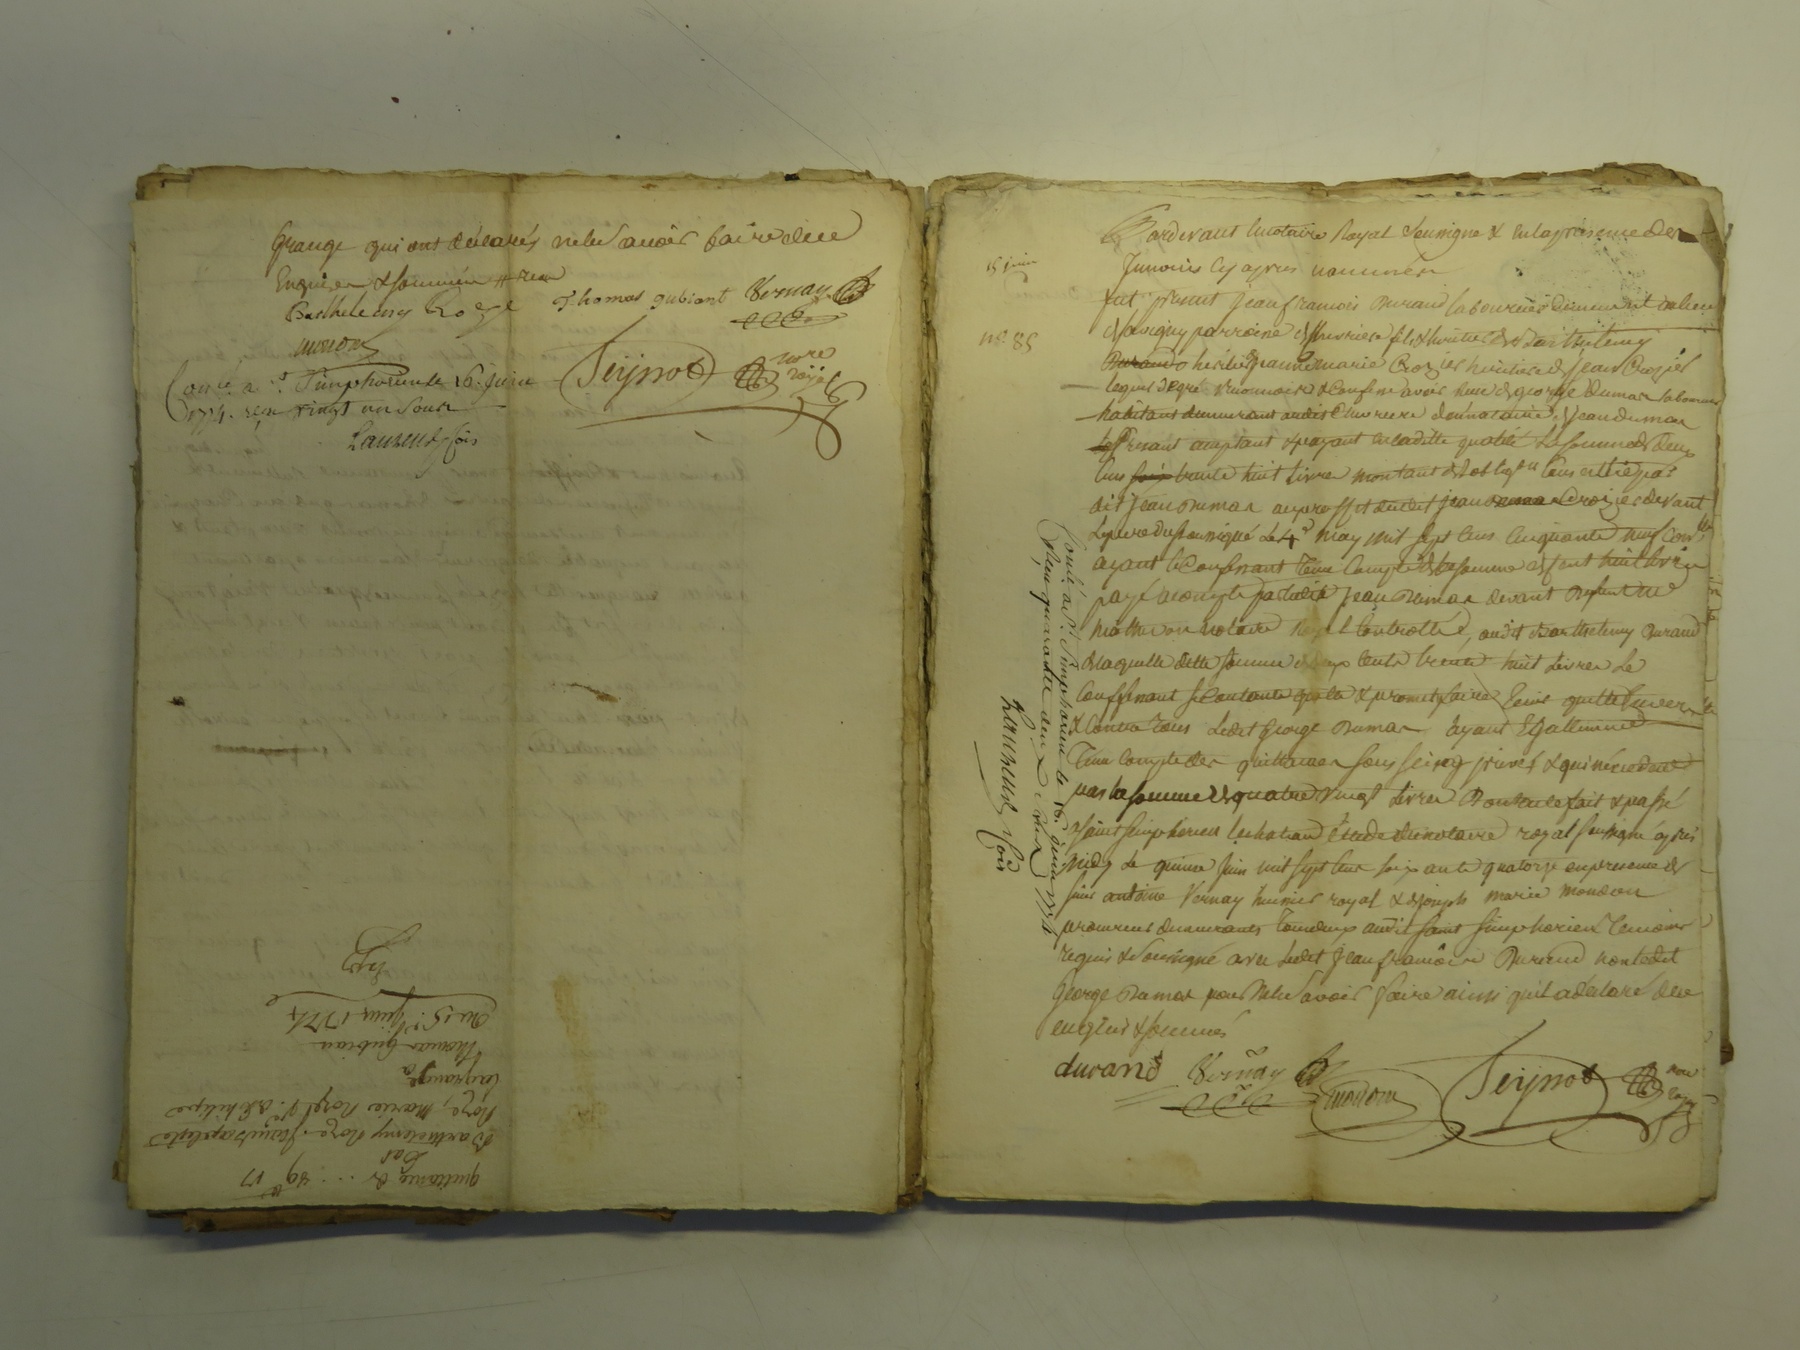 Grange qui ont déclarés ne le savoir faire de ce
Enquis & sommés
Barthelemy Roze Thomas gubiant Vernay
mondon
Conté a St Simphorien le 16 Juin Seÿnod nore
1774. reçu vingt un sous royal
Laurenson
quittance de ... 89 tt 17
Barthelemy Roze
Roze, Marie Rozet
lagrange
Thomas Gubian
Du 15e juin 1774
Pardevant le notaire Royal soussigné & en la présence des
15 juin
Temoins cy après nommés
fut présent Jean françois Durand laboureur demeurant au lieu
No 85
parroisse fils & heritier de Barthelemy
Durand heritier grande marie Crozier heritiere de Jean Crozier
lequel de gré reconnoit & confesse avoir reçu de george Dumas laboureur
habitant demeurant audit de Jean dumas
présent acceptant & payant en ladite qualité la somme de deux
cens trente huit livres montant de l'obligon consentie par
dit Jean Dumas au proffit dudit Jean Crozier devant
le notaire soussigné le 4e may mil sept cens cinquante neuf Conllé
ayant le Confessant tenu Compte de la somme de huit livres
payé acompte par ledit Jean Dumas devant me
notaire royal Controllé, audit Barthelemy Durand
de laquelle dette somme de deux cents trente huit livres le
Confessant se contante quitte & promet faire tenir quitte envers
& Contre tous ledit George Dumas ayant Egallement
Tenu Compte des quittances sous seing privés & qui n'excedent
pas la somme de quatre vingt livres Dont acte fait & passé
a saint simphorien le chateau Etude du notaire royal soussigné après
midy le quinze Juin mil sept cens soixante quatorze en presence de
sieur antoine Vernay huissier royal & de Joseph marie mondon
procureur demeurants tous deux audit saint Simphorien temoins
requis & soussigné avec ledit Jean françois Durand non ledit
George Dumas pour ne le savoir faire ainsi qu'il a déclaré de ce
enquis & sommés
durand Vernay mondon Seÿnod nore
royal
Conté a St Simphorien le 16 juin 1774
reçu quarante deux sous
Laurenson